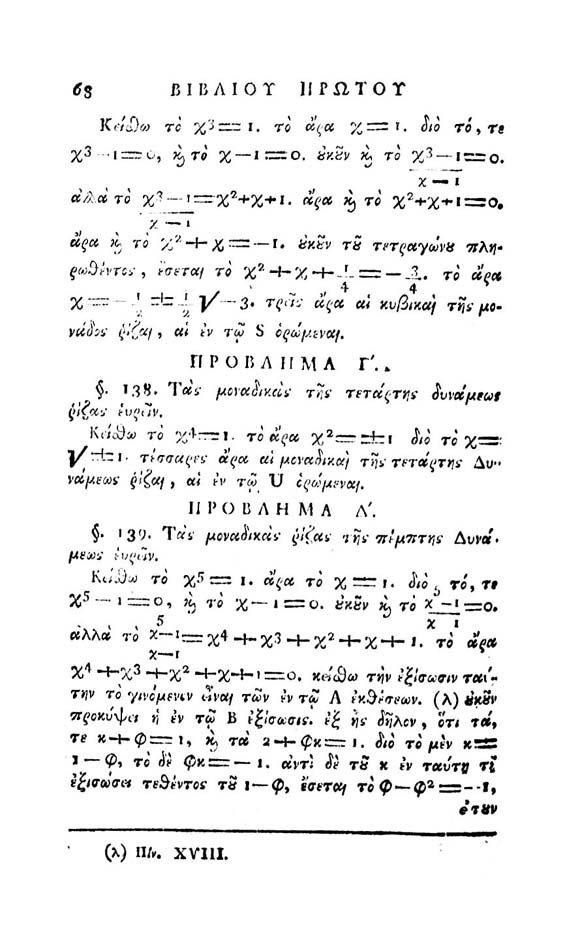 68 ΒΙΒΛΙΟΥ ΠΡΩΤΟΥ
Κείσθω τὸ χ3 = 1. τὸ ἄρα χ = 1. διὸ τό, τε
χ3 — 1 = 0, ϗ τὸ χ — 1 = 0. ȣκȣ͂ν ϗ τὸ χ3 — 1 = 0.
χ — 1
ἀλλὰ τὸ χ3 — 1 = χ2 + χ + 1. ἄρα ϗ τὸ χ2 + χ + 1 = 0.
χ — 1
ἄρα ϗ τὸ χ2 + χ = — 1. ȣκȣ͂ν τȣ͂ τετραγώνȣ πλη-
ρωθέντος, ἔσεται τὸ χ2 + χ + 1/4 = — 3/4. τὸ ἄρα
χ = — 1/2 ± 1/2 √ — 3. τρεῖς ἄρα αἱ κυβικαὶ τῆς μο-
νάδος ῥίζαι, αἱ ἐν τῷ S ὁρώμεναι.
ΠΡΟΒΛΗΜΑ Γ΄.
§. 138. Τὰς μοναδικὰς τῆς τετάρτης δυνάμεως
ῥίζας εὑρεῖν.
Κείσθω τὸ χ4 = 1. τὸ ἄρα χ2 = ± 1 διὸ τὸ χ =
√ ± 1. τέσσαρες ἄρα αἱ μοναδικαὶ τῆς τετάρτης Δυ-
νάμεως ῥίζαι, αἱ ἐν τῷ U ὁρώμεναι.
ΠΡΟΒΛΗΜΑ Δ΄.
§. 139. Τὰς μοναδικὰς ῥίζας τῆς πέμπτης Δυνά-
μεως εὑρεῖν.
Κείσθω τὸ χ5 = 1. ἄρα τὸ χ = 1. διὸ τό, τε
χ5 — 1 = 0, ϗ τὸ χ — 1 = 0. ȣκȣ͂ν ϗ τὸ χ5 — 1 = 0.
χ 1
ἀλλὰ τὸ χ5 — 1 = χ4 + χ3 + χ2 + χ + 1. τὸ ἄρα
χ — 1
χ4 + χ3 + χ2 + χ + 1 = 0. κείσθω τὴν ἐξίσωσιν ταύ-
την τὸ γινόμενον εἶναι τῶν ἐν τῷ Α ἐκθέσεων. (λ) ȣκȣ͂ν
προκύψει ἡ ἐν τῷ Β ἐξίσωσις. ἐξ ἧς δῆλον, ὅτι τά,
τε κ + Φ = 1, ϗ τὰ 2 + Φκ = 1. διὸ τὸ μὲν κ =
1 — Φ, τὸ δὲ Φκ = — 1. ἀντὶ δὲ τȣ͂ κ ἐν ταύτῃ τῇ
ἐξισώσει τεθέντος τȣ͂ 1 — Φ, ἔσεται τὸ Φ — Φ2 = — 1,
ἐτȣν
(λ) Πίν. XVIII.